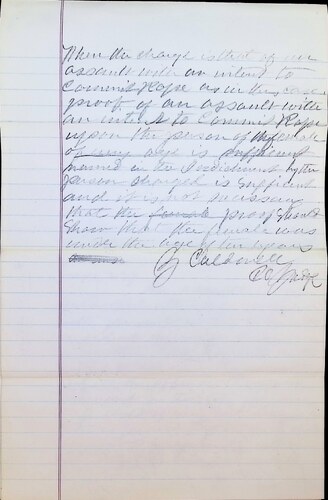 When the charge is that of an
assault with an intent to
commit Rape as in this case
proof of an assault with
an intent to commit Rape
upon the person of the female
of any age is sufficient
named in the Indictment by the
person charged is sufficient
and it is not necessary
that the female proof should
show that the female was
under the age of ten years
J Caldwell
CC Judge